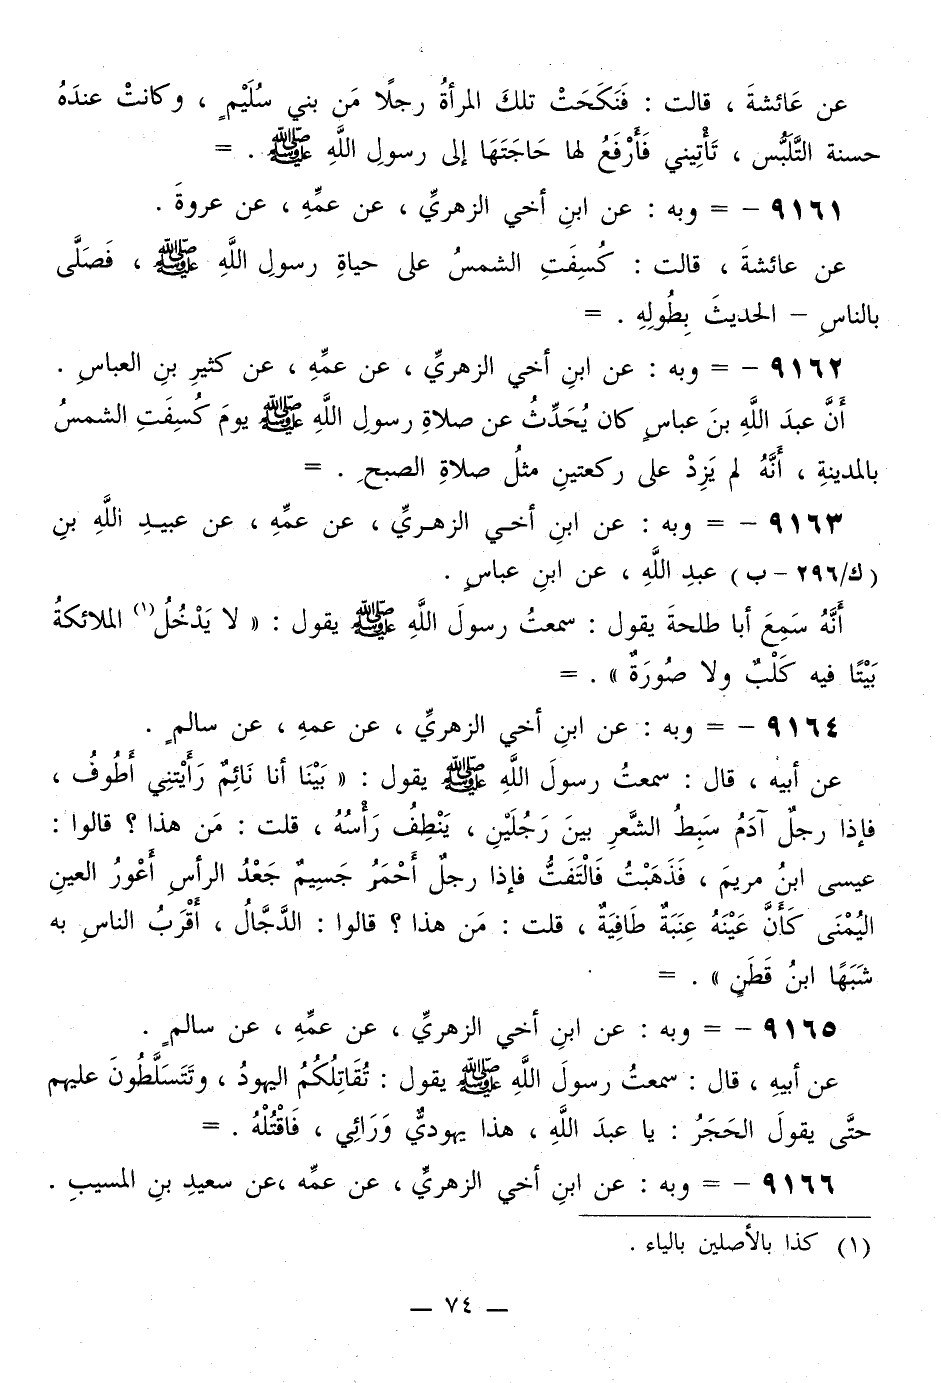 عن عَائشةَ ، قالت : فَنَكَحَتْ تلكَ المرأةُ رجلًا مَن بني سُلَيْمٍ ، وكانتْ عندَهُ
حسنة التَّلَبُّس ، تَأْتِيني فَأَرْفَعُ لها حَاجَتَهَا إلى رسولِ اللَّهِ ﷺ . =
٩١٦١ - = وبه : عن ابنِ أخي الزهريِّ ، عن عمِّهِ ، عن عروةَ .
عن عائشةَ ، قالت : كُسِفَتِ الشمسُ على حياةِ رسولِ اللَّهِ ﷺ ، فَصَلَّى
بالناسِ - الحديثَ بِطُولِهِ . =
٩١٦٢ - = وبه : عن ابنِ أخي الزهريِّ ، عن عمِّهِ ، عن كثيرِ بنِ العباسِ .
أَنَّ عبدَ اللَّهِ بنَ عباسٍ كان يُحَدِّثُ عن صلاةِ رسولِ اللَّهِ ﷺ يومَ كُسِفَتِ الشمسُ
بالمدينةِ ، أَنَّهُ لم يَزِدْ على ركعتينِ مثلُ صلاةِ الصبحِ . =
٩١٦٣ - = وبه : عن ابنِ أخي الزهريِّ ، عن عمِّهِ ، عن عبيدِ اللَّهِ بنِ
(ك/٢٩٦ - ب) عبدِ اللَّهِ ، عن ابنِ عباسٍ .
أَنَّهُ سَمِعَ أبا طلحةَ يقول : سمعتُ رسولَ اللَّهِ ﷺ يقول : « لا يَدْخُلُ(١) الملائكةُ
بَيْتًا فيه كَلْبٌ ولا صُورَةٌ » . =
٩١٦٤ - = وبه : عن ابنِ أخي الزهريِّ ، عن عمهِ ، عن سالمٍ .
عن أبيه ، قال : سمعتُ رسولَ اللَّهِ ﷺ يقول : « بَيْنَا أنا نَائِمٌ رَأَيْتنِي أَطُوف ،
فإذا رجلٌ آدَمُ سَبِطُ الشَّعرِ بينَ رَجُلَيْنِ ، يَنْطِفُ رَأْسُهُ ، قلت : مَن هذا ؟ قالوا :
عيسى ابنُ مريمَ ، فَذَهَبْتُ فَالْتَفَتُّ فإذا رجلٌ أَحْمَرُ جَسِيمٌ جَعْدُ الرأسِ أَعْورُ العينِ
اليُمْنَى كَأَنَّ عَيْنَهُ عِنَبَةٌ طَافِيَةٌ ، قلت : مَن هذا ؟ قالوا : الدَّجَّالُ ، أَقْرَبُ الناسِ به
شَبَهًا ابنُ قَطَنٍ » . =
٩١٦٥ - = وبه : عن ابنِ أخي الزهريِّ ، عن عمِّهِ ، عن سالمٍ .
عن أبيهِ ، قال : سمعتُ رسولَ اللَّهِ ﷺ يقول : تُقَاتِلُكُمُ اليهودُ ، وتَتَسَلَّطُونَ عليهم
حتَّى يقولَ الحَجَرُ : يا عبدَ اللَّهِ ، هذا يهوديٌّ وَرَائِي ، فَاقْتُلْهُ . =
٩١٦٦ - = وبه : عن ابنِ أخي الزهريِّ ، عن عمِّه ،عن سعيدِ بنِ المسيبِ .
(١) كذا بالأصلين بالياء .
— ٧٤ —